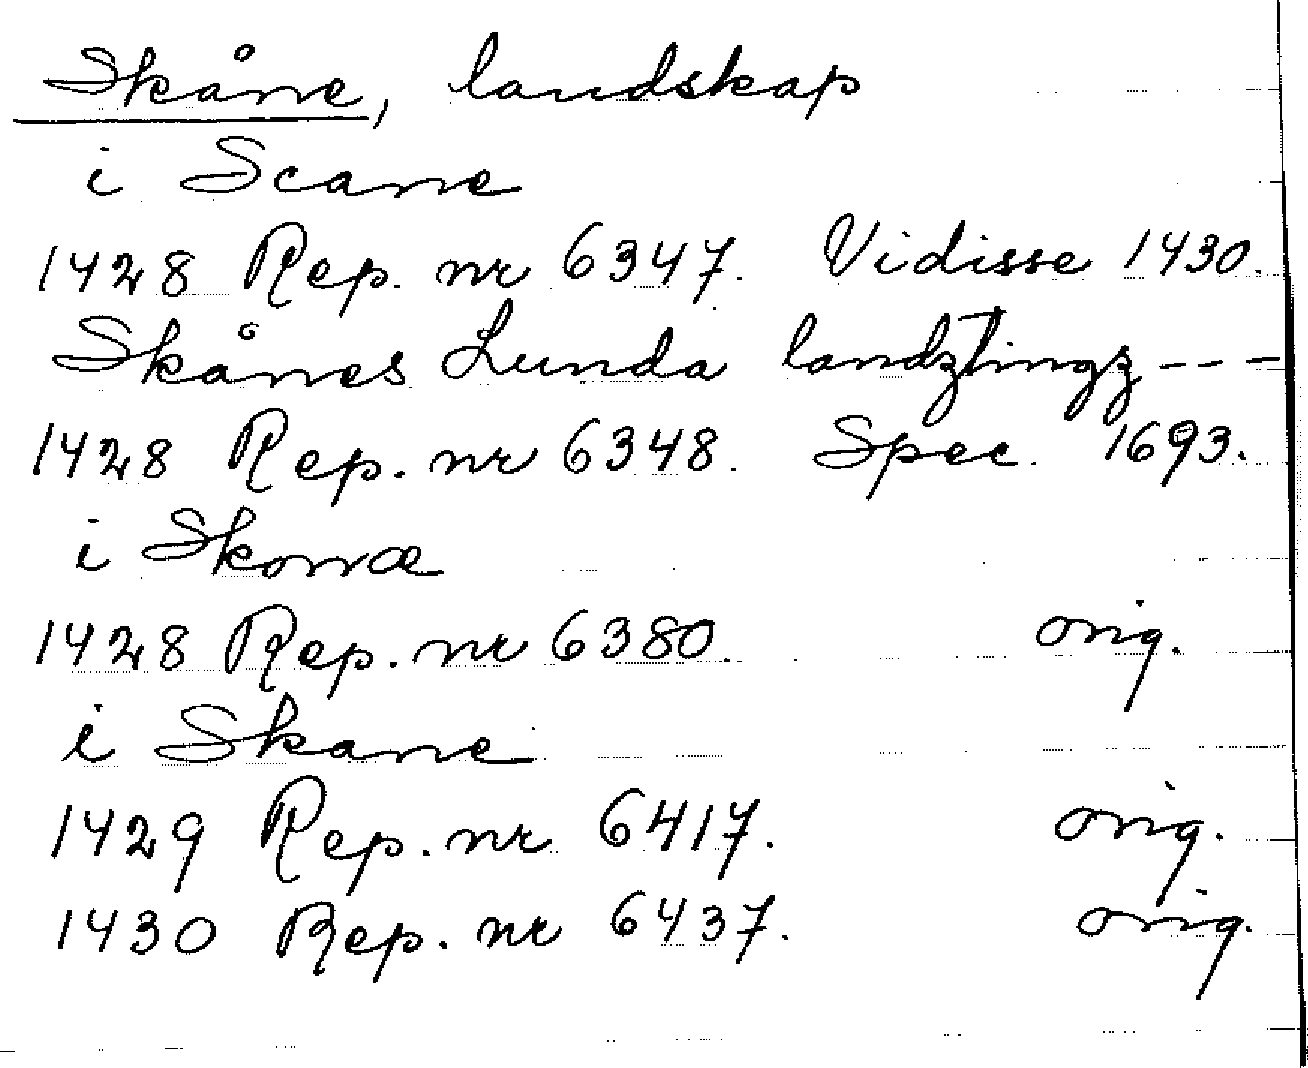 Skåne, landskap
i Scane
1428 Rep. nr 6347. Vidisse 1430.
Skånes Lunda landztingz---
1428 Rep. nr 6348. Spec. 1693.
i Skonæ
1428 Rep. nr 6380. orig.
i Skane
1429 Rep. nr 6417. orig.
1430 Rep. nr 6437. orig.